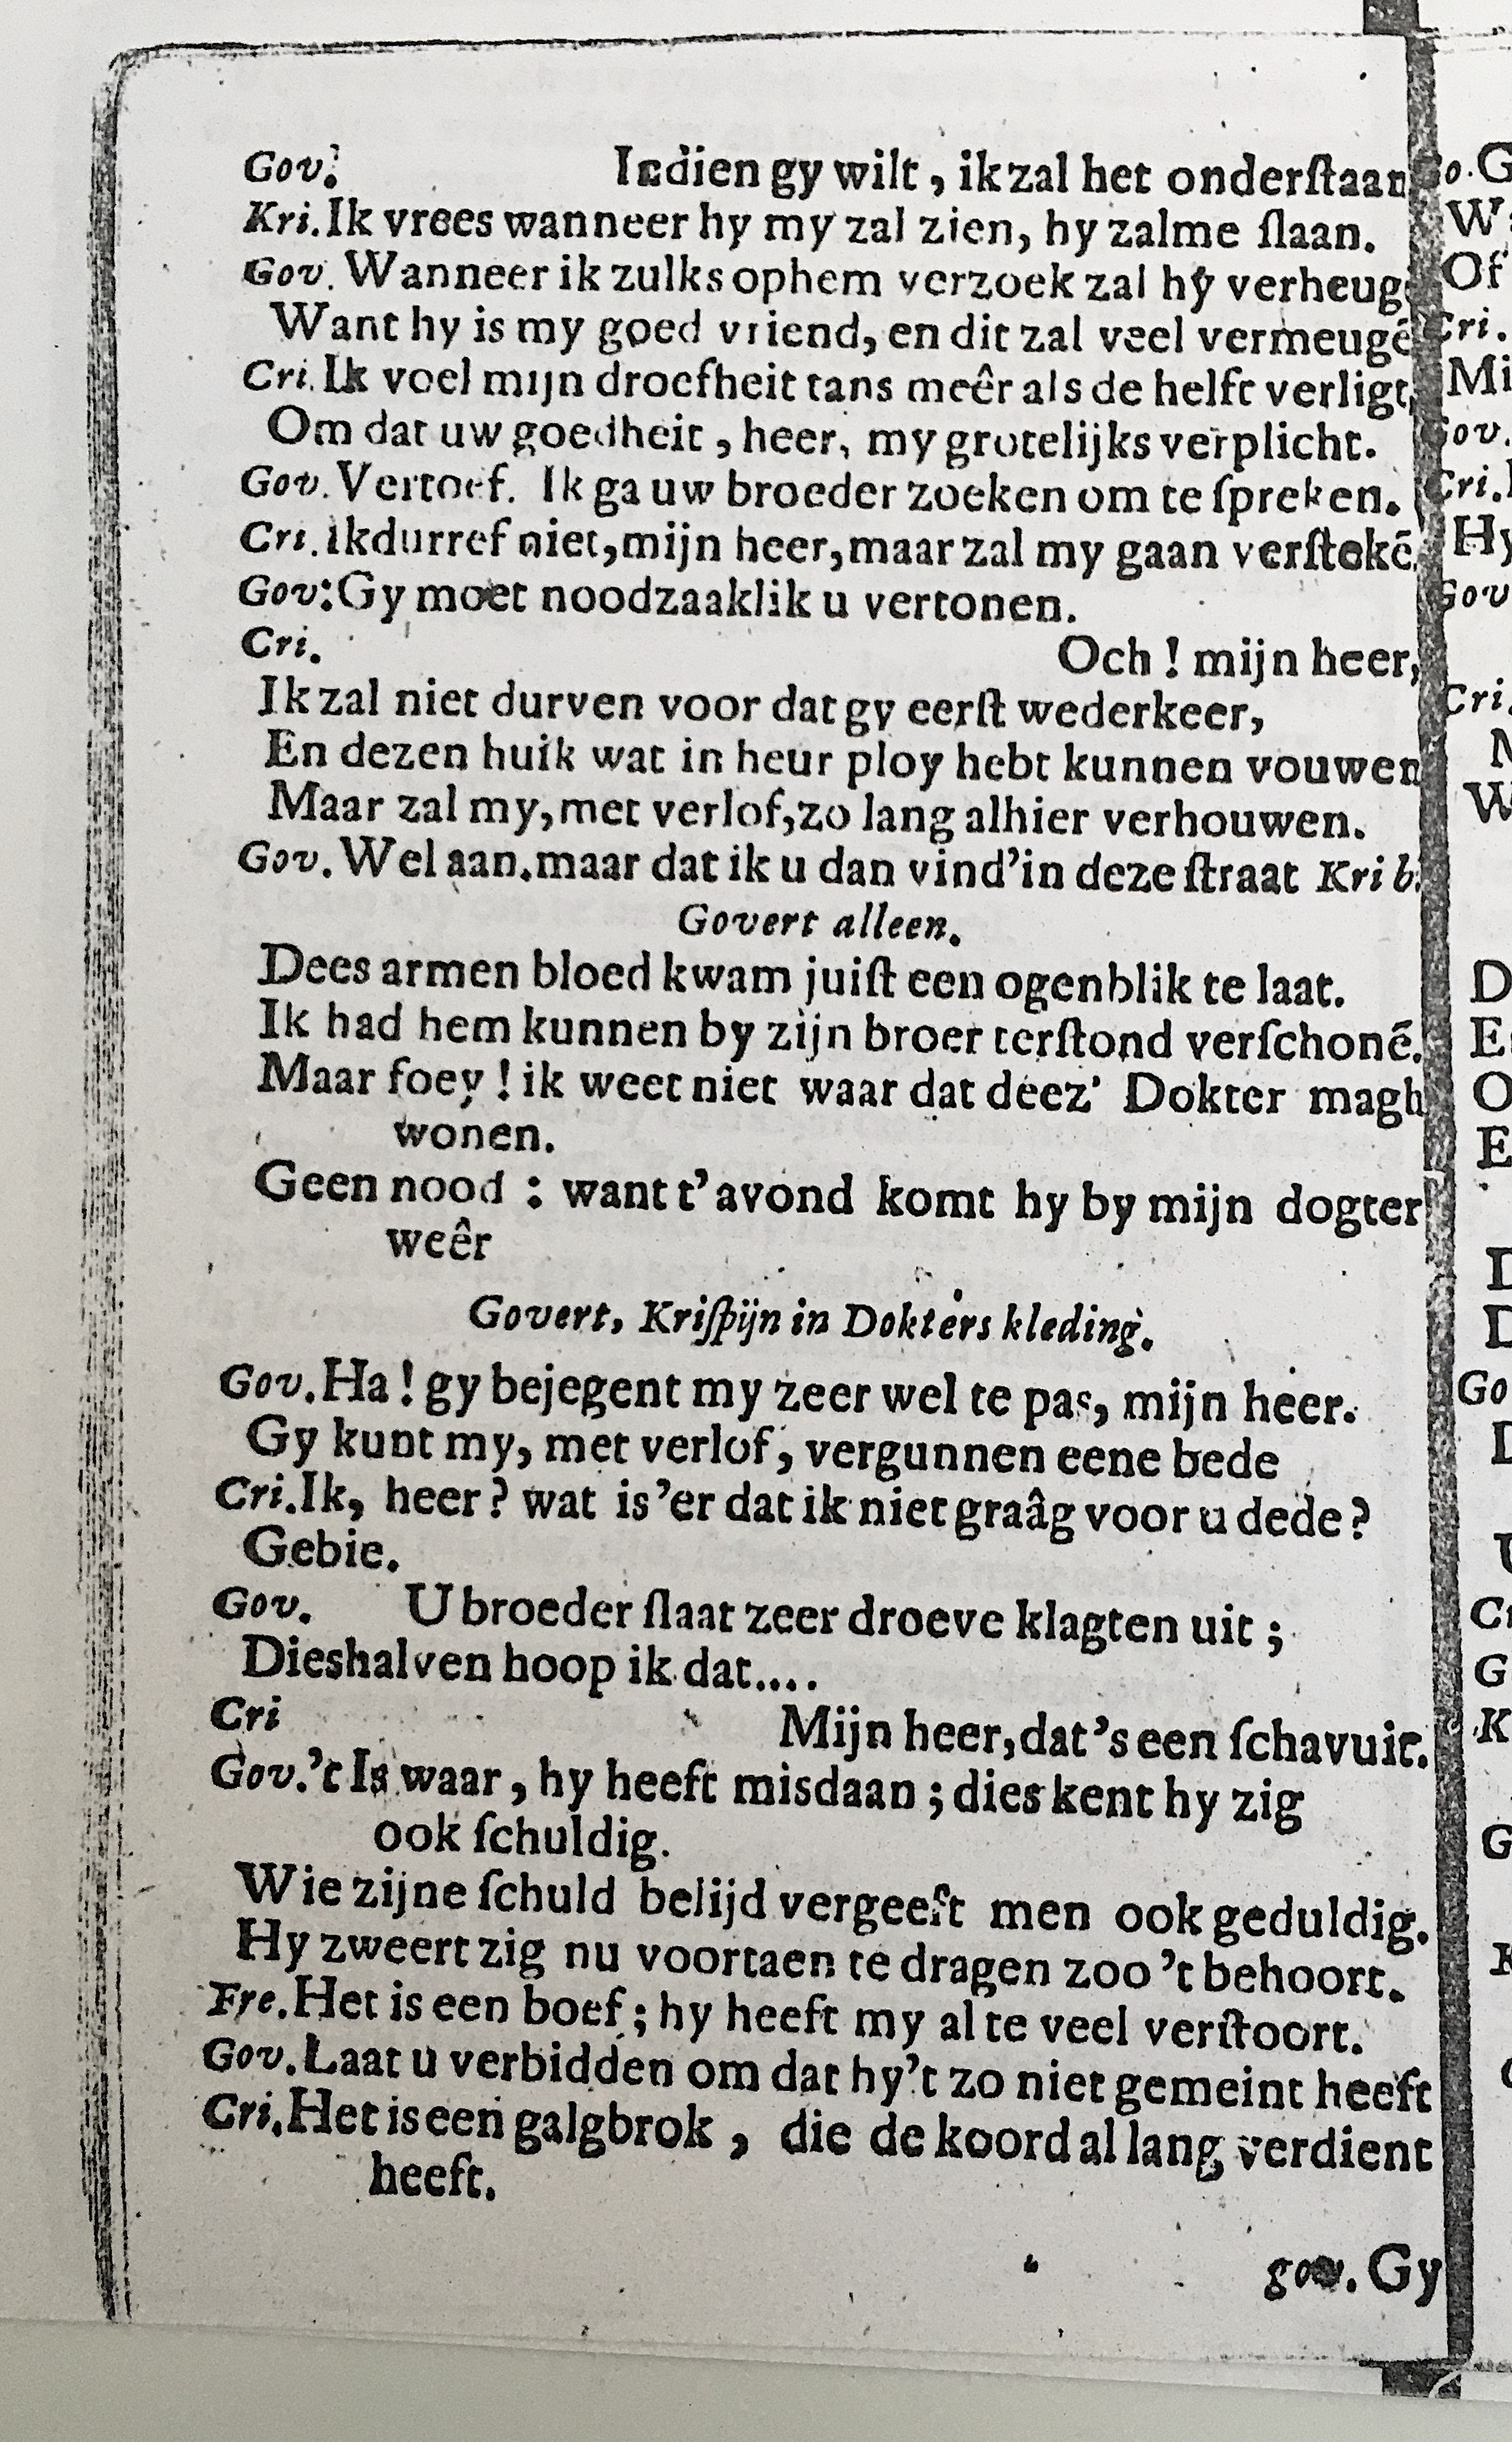 Gov. Indien gy wilt, ik zal het onderſtaan
Kri. Ik vrees wanneer hy my zal zien, hy zalme ſlaan.
Gov. Wanneer ik zulks ophem verzoek zal hy verheug
Want hy is my goed vriend, en dit zal veel vermeugē
Cri. Ik voel mijn droefheit tans meêr als de helft verligt,
Om dat uw goedheit, heer, my grotelijks verplicht.
Gov. Vertoef. Ik ga uw broeder zoeken om te ſpreken.
Cri. Ik durref niet, mijn heer, maar zal my gaan verſtekē.
Gov: Gy moet noodzaaklik u vertonen.
Cri. Och! mijn heer,
Ik zal niet durven voor dat gy eerſt wederkeer,
En dezen huik wat in heur ploy hebt kunnen vouwen
Maar zal my, met verlof, zo lang alhier verhouwen.
Gov. Wel aan. maar dat ik u dan vind' in deze ſtraat Kri b.
Govert alleen.
Dees armen bloed kwam juiſt een ogenblik te laat.
Ik had hem kunnen by zijn broer terſtond verſchonē.
Maar foey! ik weet niet waar dat deez' Dokter magh
wonen.
Geen nood: want t'avond komt hy by mijn dogter
weêr
Govert, Kriſpijn in Dokters kleding.
Gov. Ha! gy bejegent my zeer wel te pas, mijn heer.
Gy kunt my, met verlof, vergunnen eene bede
Cri. Ik, heer? wat is 'er dat ik niet graâg voor u dede?
Gebie.
Gov. U broeder ſlaat zeer droeve klagten uit;
Dieshalven hoop ik dat....
Cri Mijn heer, dat's een ſchavuit.
Gov. 't Is waar, hy heeft misdaan; dies kent hy zig
ook ſchuldig.
Wie zijne ſchuld belijd vergeeft men ook geduldig.
Hy zweert zig nu voortaen te dragen zoo 't behoort.
Fre. Het is een boef; hy heeft my al te veel verſtoort.
Gov. Laat u verbidden om dat hy't zo niet gemeint heeft
Cri. Het is een galgbrok, die de koord al lang verdient
heeft.
gov. Gy